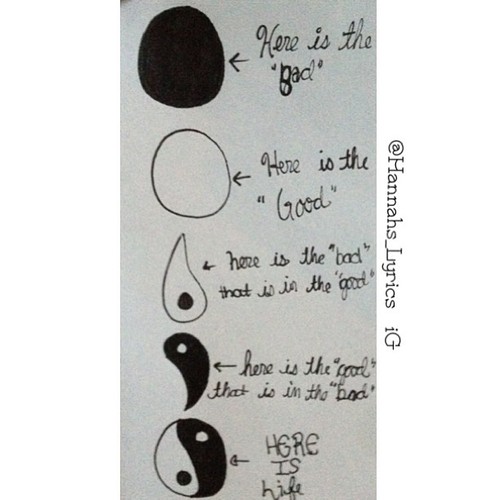 Here is the
"Bad"
Here is the
"Good"
here is the "bad"
that is in the "good"
here is the "good"
that is in the "bad"
HERE
IS
Life
@Hannahs_Lyrics iG